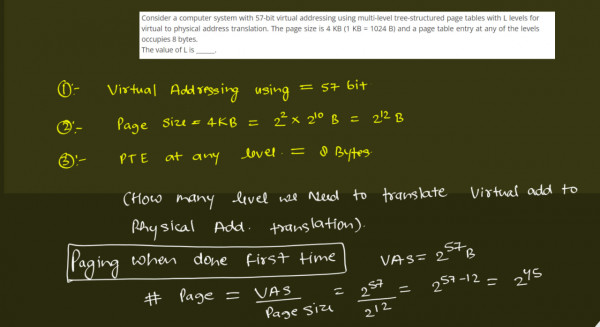 Consider a computer system with 57-bit virtual addressing using multi-level tree-structured page tables with L levels for
virtual to physical address translation. The page size is 4 KB (1 KB = 1024 B) and a page table entry at any of the levels
occupies 8 bytes.
The value of L is _____.
①:- Virtual Addressing using = 57 bit
②:- Page Size = 4KB = 2² x 2¹⁰ B = 2¹² B
③:- PTE at any level = 8 Bytes
(How many level we Need to translate Virtual add to
Physical Add. translation).
Paging when done first time VAS = 2⁵⁷ B
# Page = VAS / Page Size = 2⁵⁷ / 2¹² = 2⁵⁷⁻¹² = 2⁴⁵